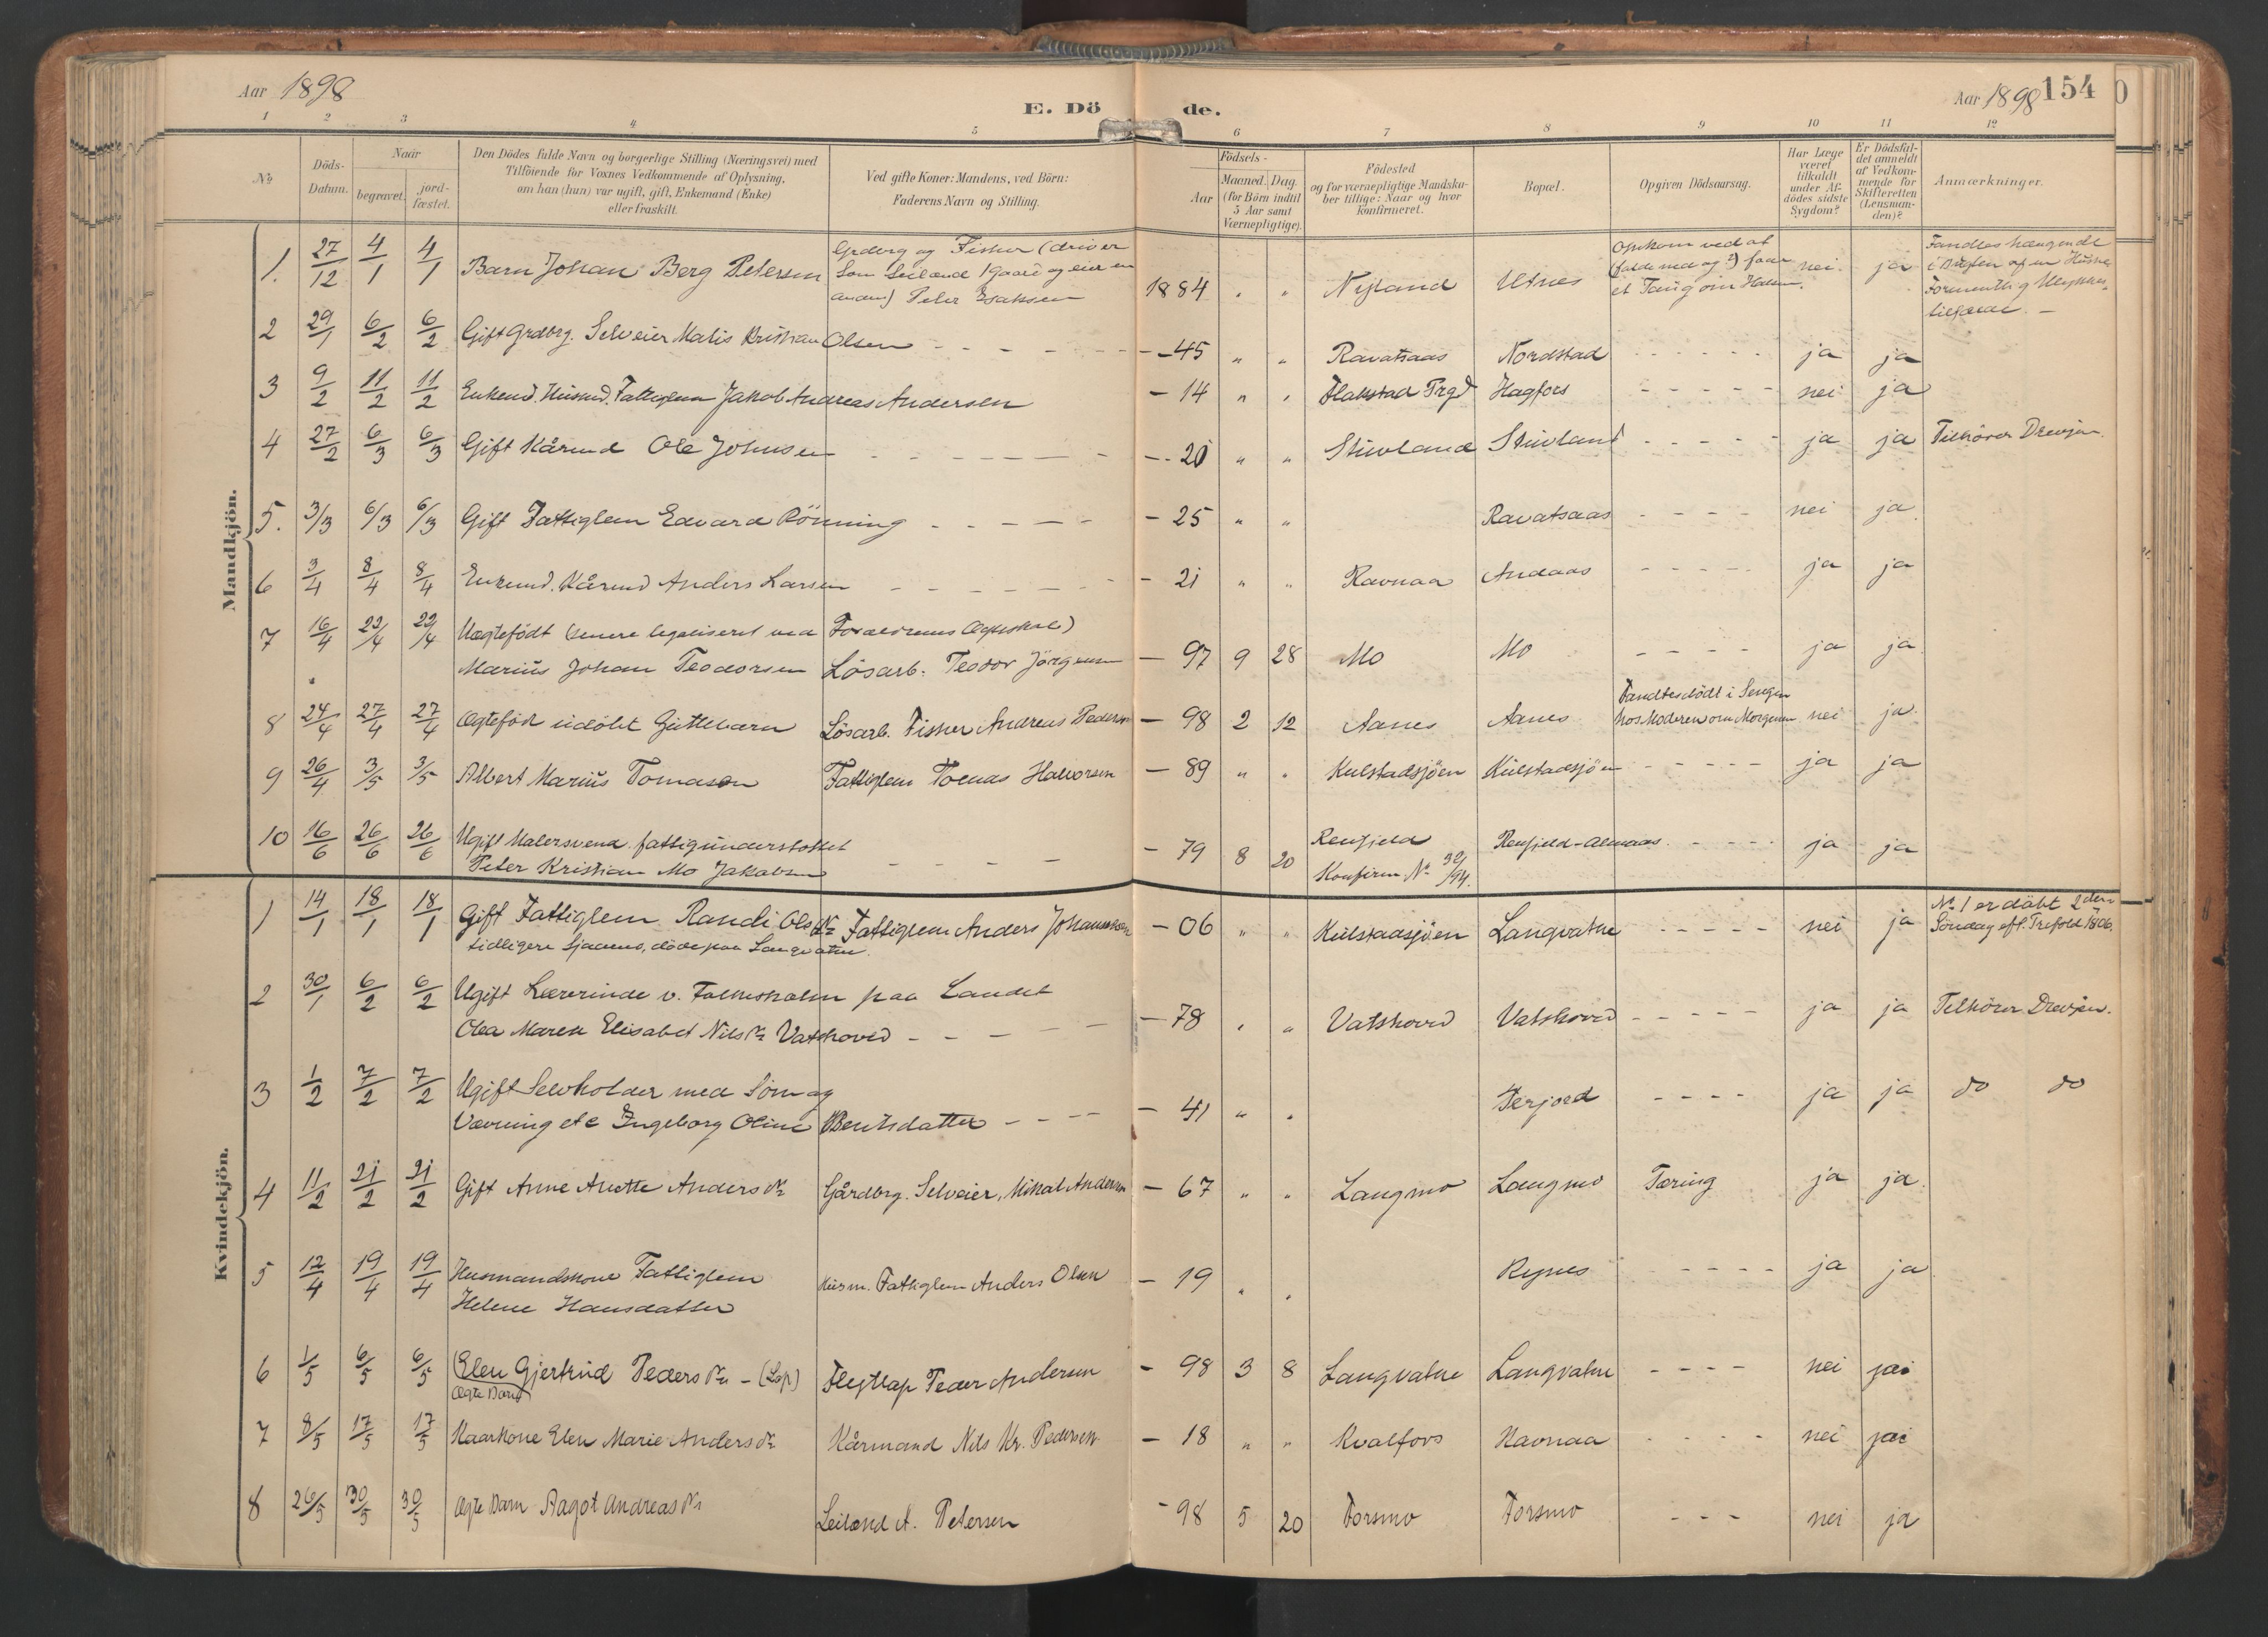 Aar 1898
E. Döde.
Aar 1898 154
1 2 3 4 5 6 7 8 9 10 11 12
No.
Döds-
Datum.
Naar
begravet.
jord-
fæstet.
Den Dödes fulde Navn og borgerlige Stilling (Næringsvei) med
Tilföiende for Voxnes Vedkommende af Oplysning,
om han (hun) var ugift, gift, Enkemand (Enke)
eller fraskilt.
Ved gifte Koner: Mandens, ved Börn:
Faderens Navn og Stilling.
Födsels-
Aar
Maaned. Dag.
(for Börn indtil
5 Aar samt
Værnepligtige).
Födested
og for værnepligtige Mandska-
ber tillige: Naar og hvor
konfirmeret.
Bopæl.
Opgiven Dödsaarsag.
Har Læge
været
tilkaldt
under Af-
dödes sidste
Sygdom?
Er Dödsfal-
det anmeldt
af Vedkom-
mende for
Skifteretten
(Lensman-
den)?
Anmærkninger.
Mandkjön.
1. 27/12 4/1 4/1 Barn Johan Berg Petersen
Grdbrg og Fisker (driver
som Leilænd 1 gaard og eier en
anden) Peter Isaksen
1884 " " Nyland Utnes
Omkom ved at
(falde ned og?) faa
et Taug om Halsen.
nei. ja
Fandtes hængende
i Bugten af en Huske
Formentlig Ulykkes-
tilfælde. -
2 29/1 6/2 6/2 Gift Grdbrg. Selveier Matis Kristian Olsen - - - - - 45 " " Ravatsaas Nordstad - - - - - ja ja
3 9/2 11/2 11/2 Enkemd. Husmd. Fattiglem Jakob Andreas Andersen - 14 " " Flakstad Prgd Hagfors - - - - - nei ja
4 27/2 6/3 6/3 Gift Kårmd Ole Johnsen - - - - - 20 " " Stuvland Stuvland - - - - - ja ja Tilhörer Drevjen.
5. 3/3 6/3 6/3 Gift Fattiglem Edvard Rönning - - - - - 25 " " Ravatsaas - - - - nei ja
6 3/4 8/4 8/4 Enkemd. Kårmd Anders Larsen - - - - - 21 " " Ravnaa Andaas - - - - - ja ja
7 16/4 22/4 22/4 Uægtefödt (senere legaliseret ved Forældrenes Ægteskab)
Marius Johan Teodorsen Lösarb. Teodor Jörgensen - 97 9 28 Mo Mo - - - - ja ja
8 24/4 27/4 27/4 Ægtefödt udöbt Guttebarn Lösarb. Fisker Andreas Pedersen - 98 2 12 Aanes Aanes
Fandtes dödt i Sengen
hos Moderen om Morgenen nei ja
9 26/4 3/5 3/5 Albert Marius Tomassen Fattiglem Tomas Halvorsen - 89 " " Kulstadsjöen Kulstadsjöen - - - - - ja ja
10 16/6 26/6 26/6 Ugift Malersvend fattigunderstottet
Peter Kristian Mo Jakobsen - - - - 79 8 20
Renfjeld
Konfirm. No 32/94.
Renfjeld-Almaas. - - - - ja ja
Kvindekjön.
1 14/1 18/1 18/1 Gift Fattiglem Randi Olsdtr Fattiglem Anders Johannesen - 06 " " Kulstadsjöen Langvatne - - - - - nei ja
tidligere Sjaanes, döde paa Langvatne.
No. 1 er döbt 2den
Söndag eft. Trefold. 1806.
2 30/1 6/2 6/2 Ugift Lærerinde v. Folkeskolen paa Landet
Olea Maren Elisabet Nilsdtr Vatshoved - - - - 78 " " Vatshoved Vatshoved - - - - - ja ja Tilhörer Drevjen.
3 1/2 7/2 7/2 Ugift Selvholder med Söm og
Vævning etc Ingeborg Oline Bentsdatter - - - - 41 " " Terjord - - - - ja ja do do
4 11/2 21/2 21/2 Gift Anne Anette Andersdtr Gårdbrg. Selveier, Mikal Andersen - 67 " " Langmo Langmo Tæring ja ja.
5 12/4 19/4 19/4 Husmandskone Fattiglem
Helene Hansdatter Husm. Fattiglem Anders Olsen - 19 " " Rynes - - - - - ja ja
6 1/5 6/5 6/5 Elen Gjertrud Pedersdtr - (Lap) Flytlap Peder Andersen - 98 3 8 Langvatne Langvatne - - - - nei ja
Ægte Barn
7 8/5 17/5 17/5 Kaarkone Elen Marie Andersdtr Kårmand Nils Kr. Pedersen - 18 " " Kvalfors Ravnaa - - - - nei ja
8 26/5 30/5 30/5 Ægte Barn Dagot Andreasdtr Leilænd A. Petersen - 98 5 20 Forsmo Forsmo - - - nei ja